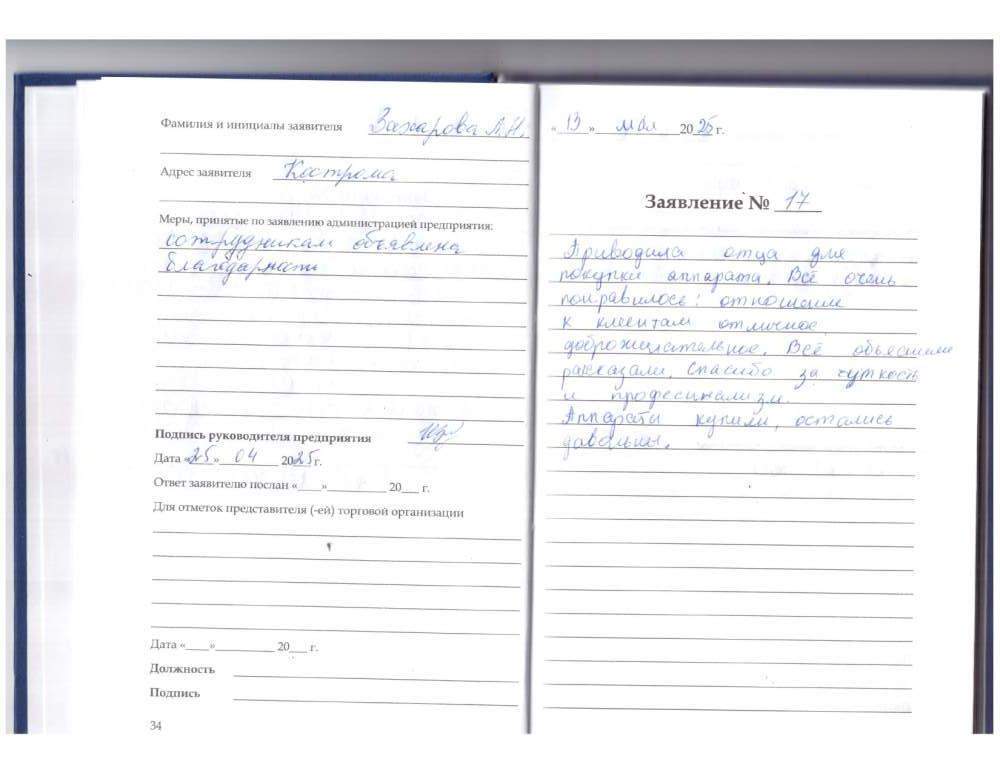 Фамилия и инициалы заявителя Захарова Л.Н.
Адрес заявителя Кострома
Меры, принятые по заявлению администрацией предприятия:
сотрудникам объявлена
благодарность
Подпись руководителя предприятия
Дата «25» 04 2025г.
Ответ заявителю послан «___»_________ 20___ г.
Для отметок представителя (-ей) торговой организации
Дата «___»_________ 20___ г.
Должность
Подпись
34
«13» мая 2025г.
Заявление № 17
Приводила отца для
покупки аппарата. Всё очень
понравилось: отношение
к клиентам отличное,
доброжелательное. Всё объяснили
рассказали. Спасибо за чуткость
и професинализм.
Аппараты купили, остались
давольны.